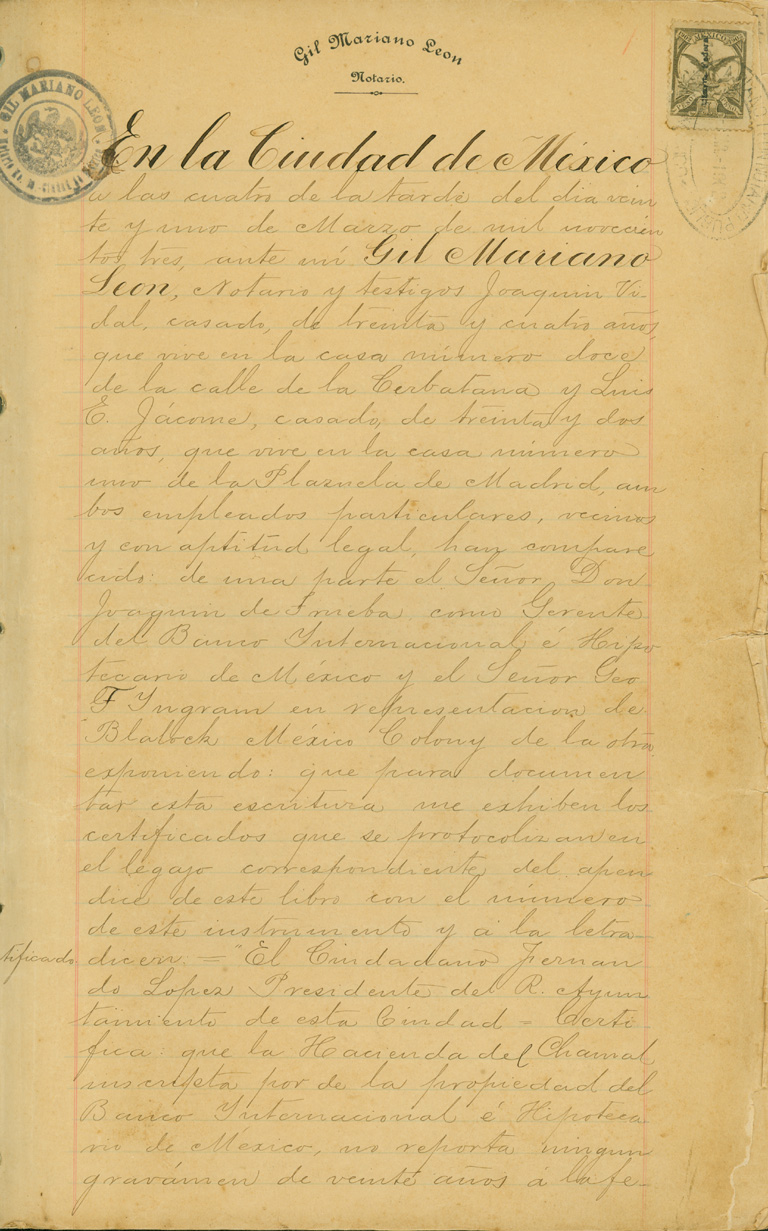 Gil Mariano Leon
Notario.
GIL MARIANO LEON
MEXICO
En la Ciudad de México
a las cuatro de la tarde del dia vein
te y uno de Marzo de mil novecien
tos tres, ante mí Gil Mariano
Leon, Notario y testigos Joaquin Vi-
dal, casado, de treinta y cuatro años,
que vive en la casa número doce
de la calle de la Cerbatana y Luis
E. Jácome, casado, de treinta y dos
años, que vive en la casa número
uno de la Plazuela de Madrid, am
bos empleados particulares, vecinos
y con aptitud legal, han compare
cido: de una parte el Señor Don
Joaquin de Trueba como Gerente
del Banco Internacional é Hipo
tecario de México y el Señor Geo
F Ingram en representacion de
"Blalock México Colony de la otra
exponiendo: que para documen
tar esta escritura me exhiben los
certificados que se protocolizan en
el legajo correspondiente del apen
dice de este libro con el número
de este instrumento y á la letra
tificado dicen = "El Ciudadano Fernan
do Lopez Presidente del R. Ayun
tamiento de esta Ciudad = Certi
fica: que la Hacienda del Chamal
inscripta por de la propiedad del
Banco Internacional é Hipoteca
rio de México, no reporta ningun
gravámen de veinte años á la fe-